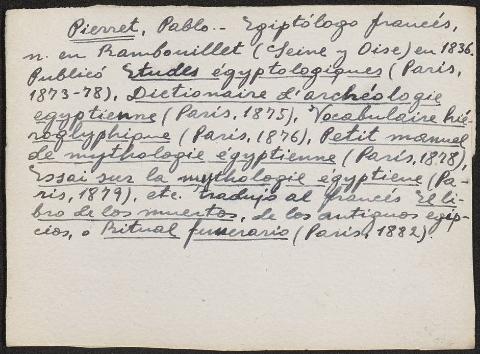 Pierret, Pablo.- Egiptólogo francés,
n. en Rambouillet (Seine y Oise) en 1836.
Publicó Etudes égyptologiques (París,
1873-78), Dictionaire d'archéologie
egyptienne (París, 1875), Vocabulaire hié-
roglyphique (París, 1876), Petit manuel
de mythologie égyptienne (París, 1878),
Essai sur la mythologie égyptiene (Pa-
ris, 1879), etc. Tradujo al francés El li-
bro de los muertos, de los antiguos egip-
cios, o Ritual funerario (París, 1882).